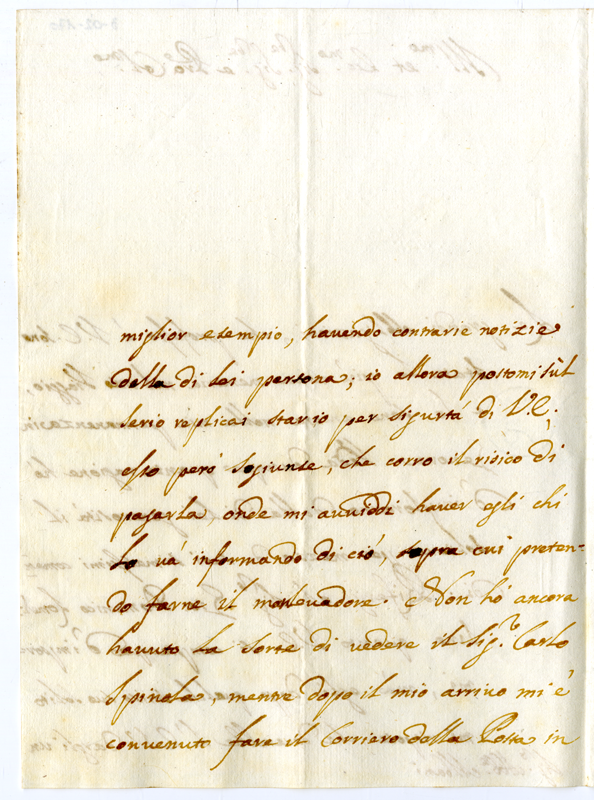 miglior esempio, havendo contrarie notizie
della di lei persona; io allora postomi sùl
serio replicai stario per sigurtá di V.E.;
esso peró sogiunse, che corro il risico di
pagarla onde mi avviddi haver egli chi
lo vá informando di ció, sopra cui preten-
do farne il mallevadore. Non hó ancora
havuto la sorte di vedere il Sig.r Carlo
Spinola, mentre dopo il mio arrivo mi é
convenuto fare il Corriero dalla Posta in